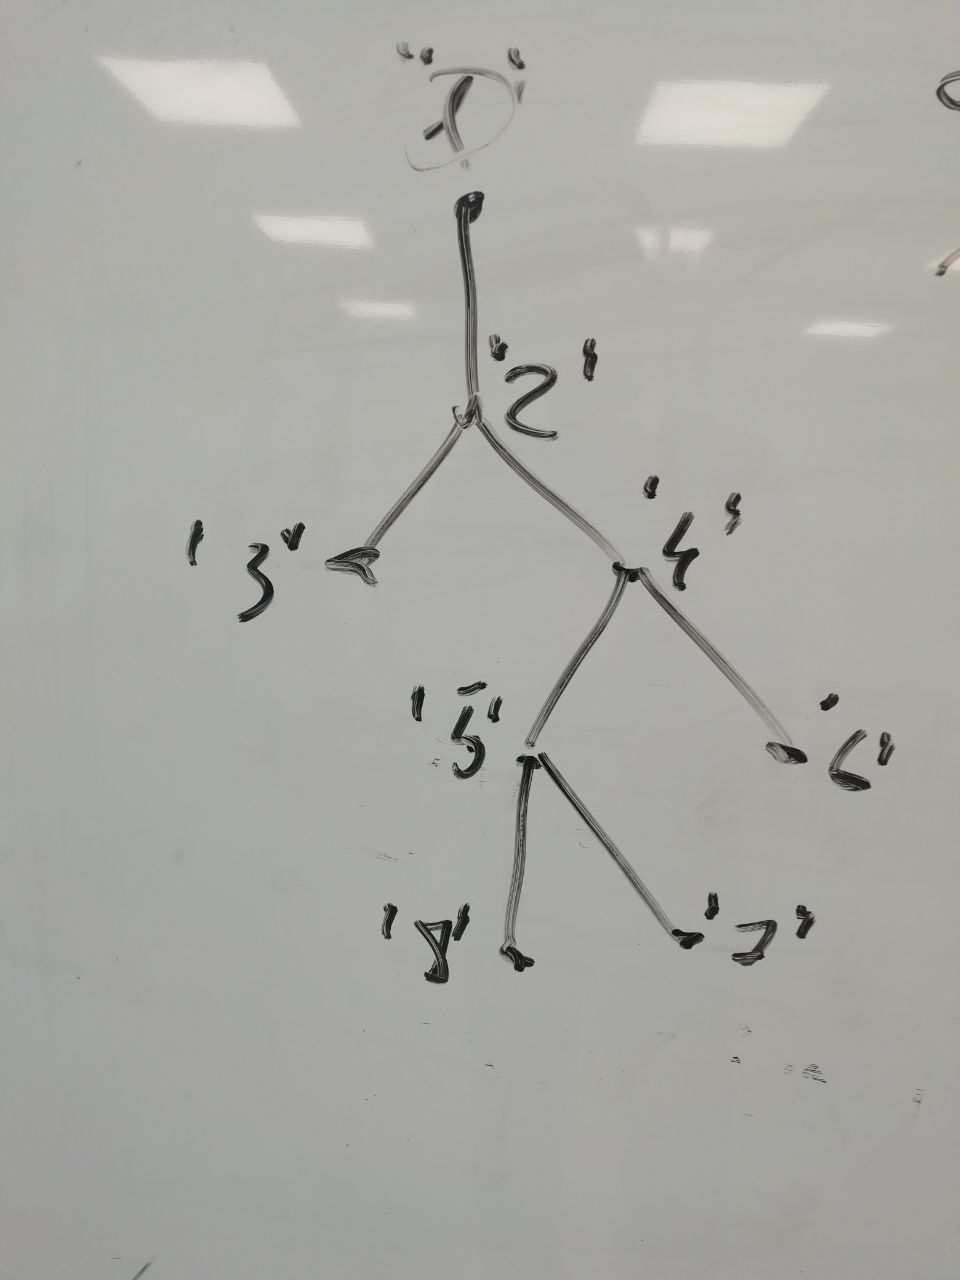 "1"
"2"
"3"
"4"
"5"
"6"
"8" "7"